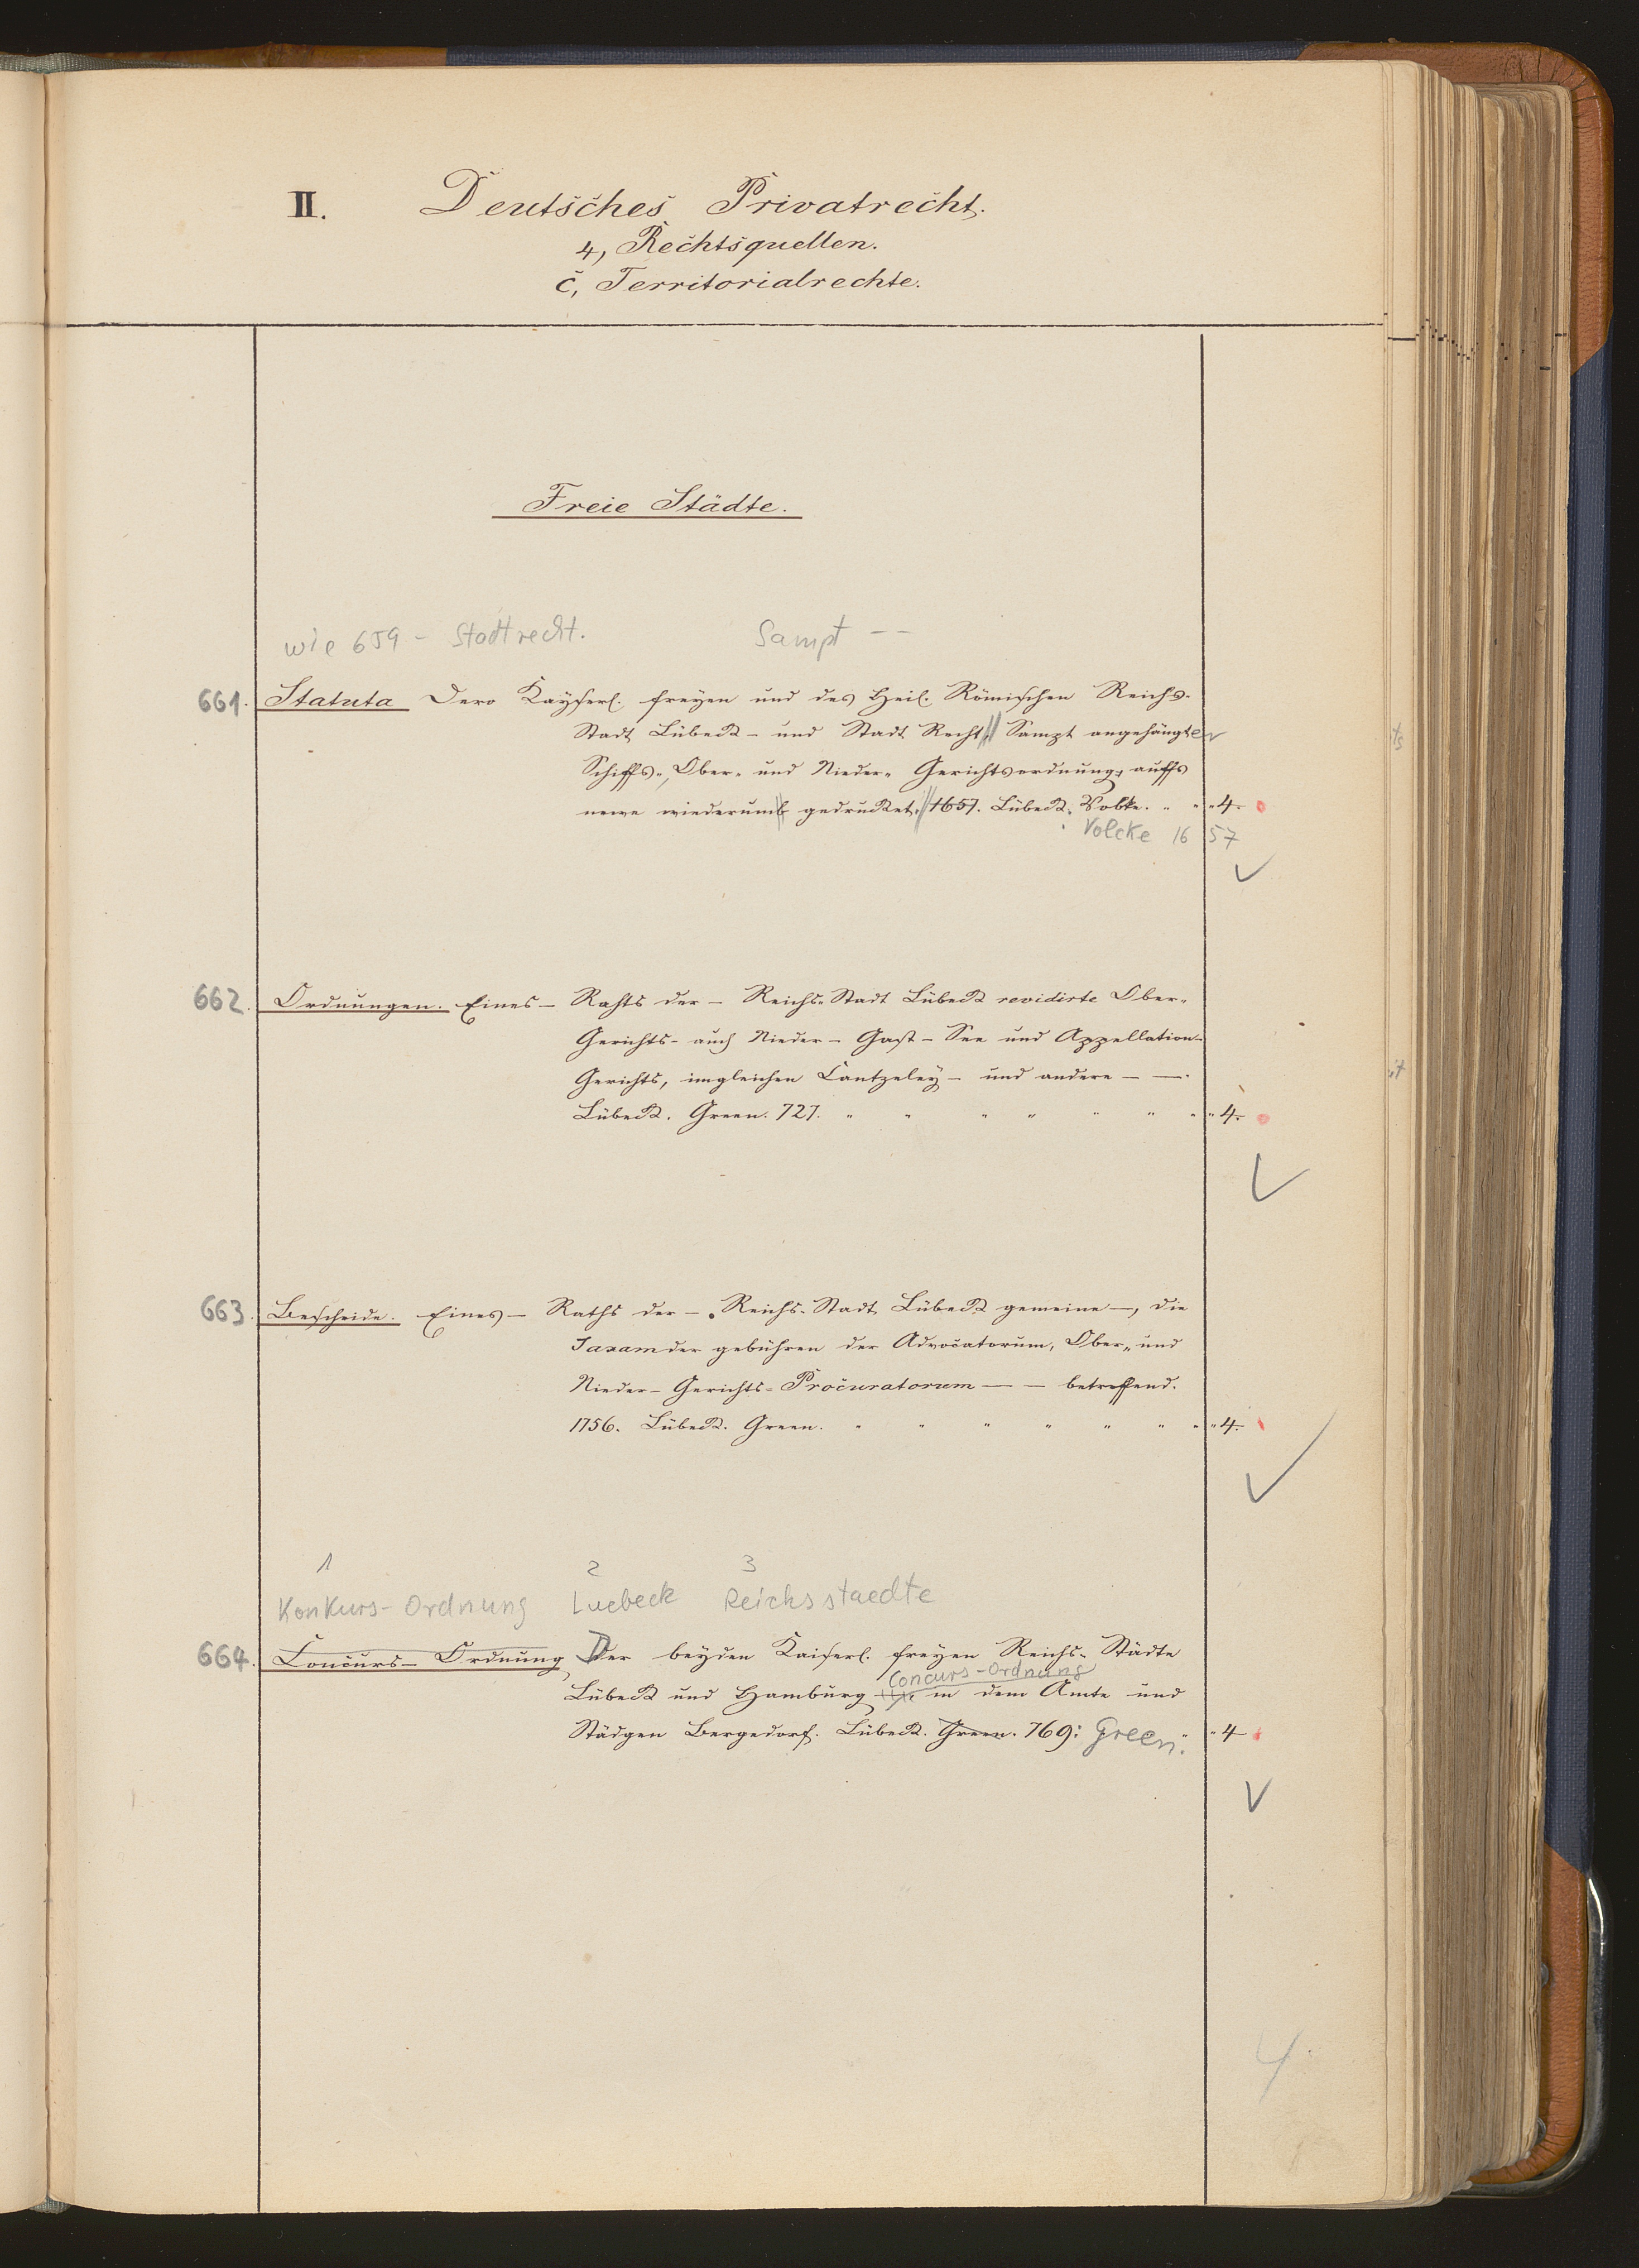 II. Deutsches Privatrecht.
4, Rechtsquellen.
c, Territorialrechte.
Freie Städte.
wie 659 - Stadtrecht. Sampt --
661. Statuta Dero Kayserl. freyen und des Heil. Römischen Reichs-
Stadt Lübeck - und Stadt Recht // Sampt angehängter
Schiffs-, Ober- und Nieder- Gerichtsordnung, auffs
newe wiederumb gedrucket. 1657. Lübeck. Volke. " " " 4.
Volcke 1657
662. Ordnungen. Eines - Rahts der - Reichs-Stadt Lübeck revidirte Ober-
Gerichts- auch Nieder - Gast - See und Appellation-
Gerichts, imgleichen Cantzeley - und andere - -.
Lübeck. Green. 727. " " " " " " " " 4.
663. Bescheide. Eines - Raths der - Reichs-Stadt Lübeck gemeine -, die
Taxam der gebühren der Advocatorum, Ober- und
Nieder- Gerichts- Procuratorum - - betreffend.
1756. Lübeck. Green. " " " " " " " " 4.
1 2 3
Konkurs-Ordnung Luebeck Reichsstaedte
664. Concurs- Ordnung Der beyden Kaiserl. freyen Reichs- Städte
Concurs-Ordnung
Lübeck und Hamburg in dem Amte und
Städgen Bergedorf. Lübeck. Green. 769: Green. " " 4
4